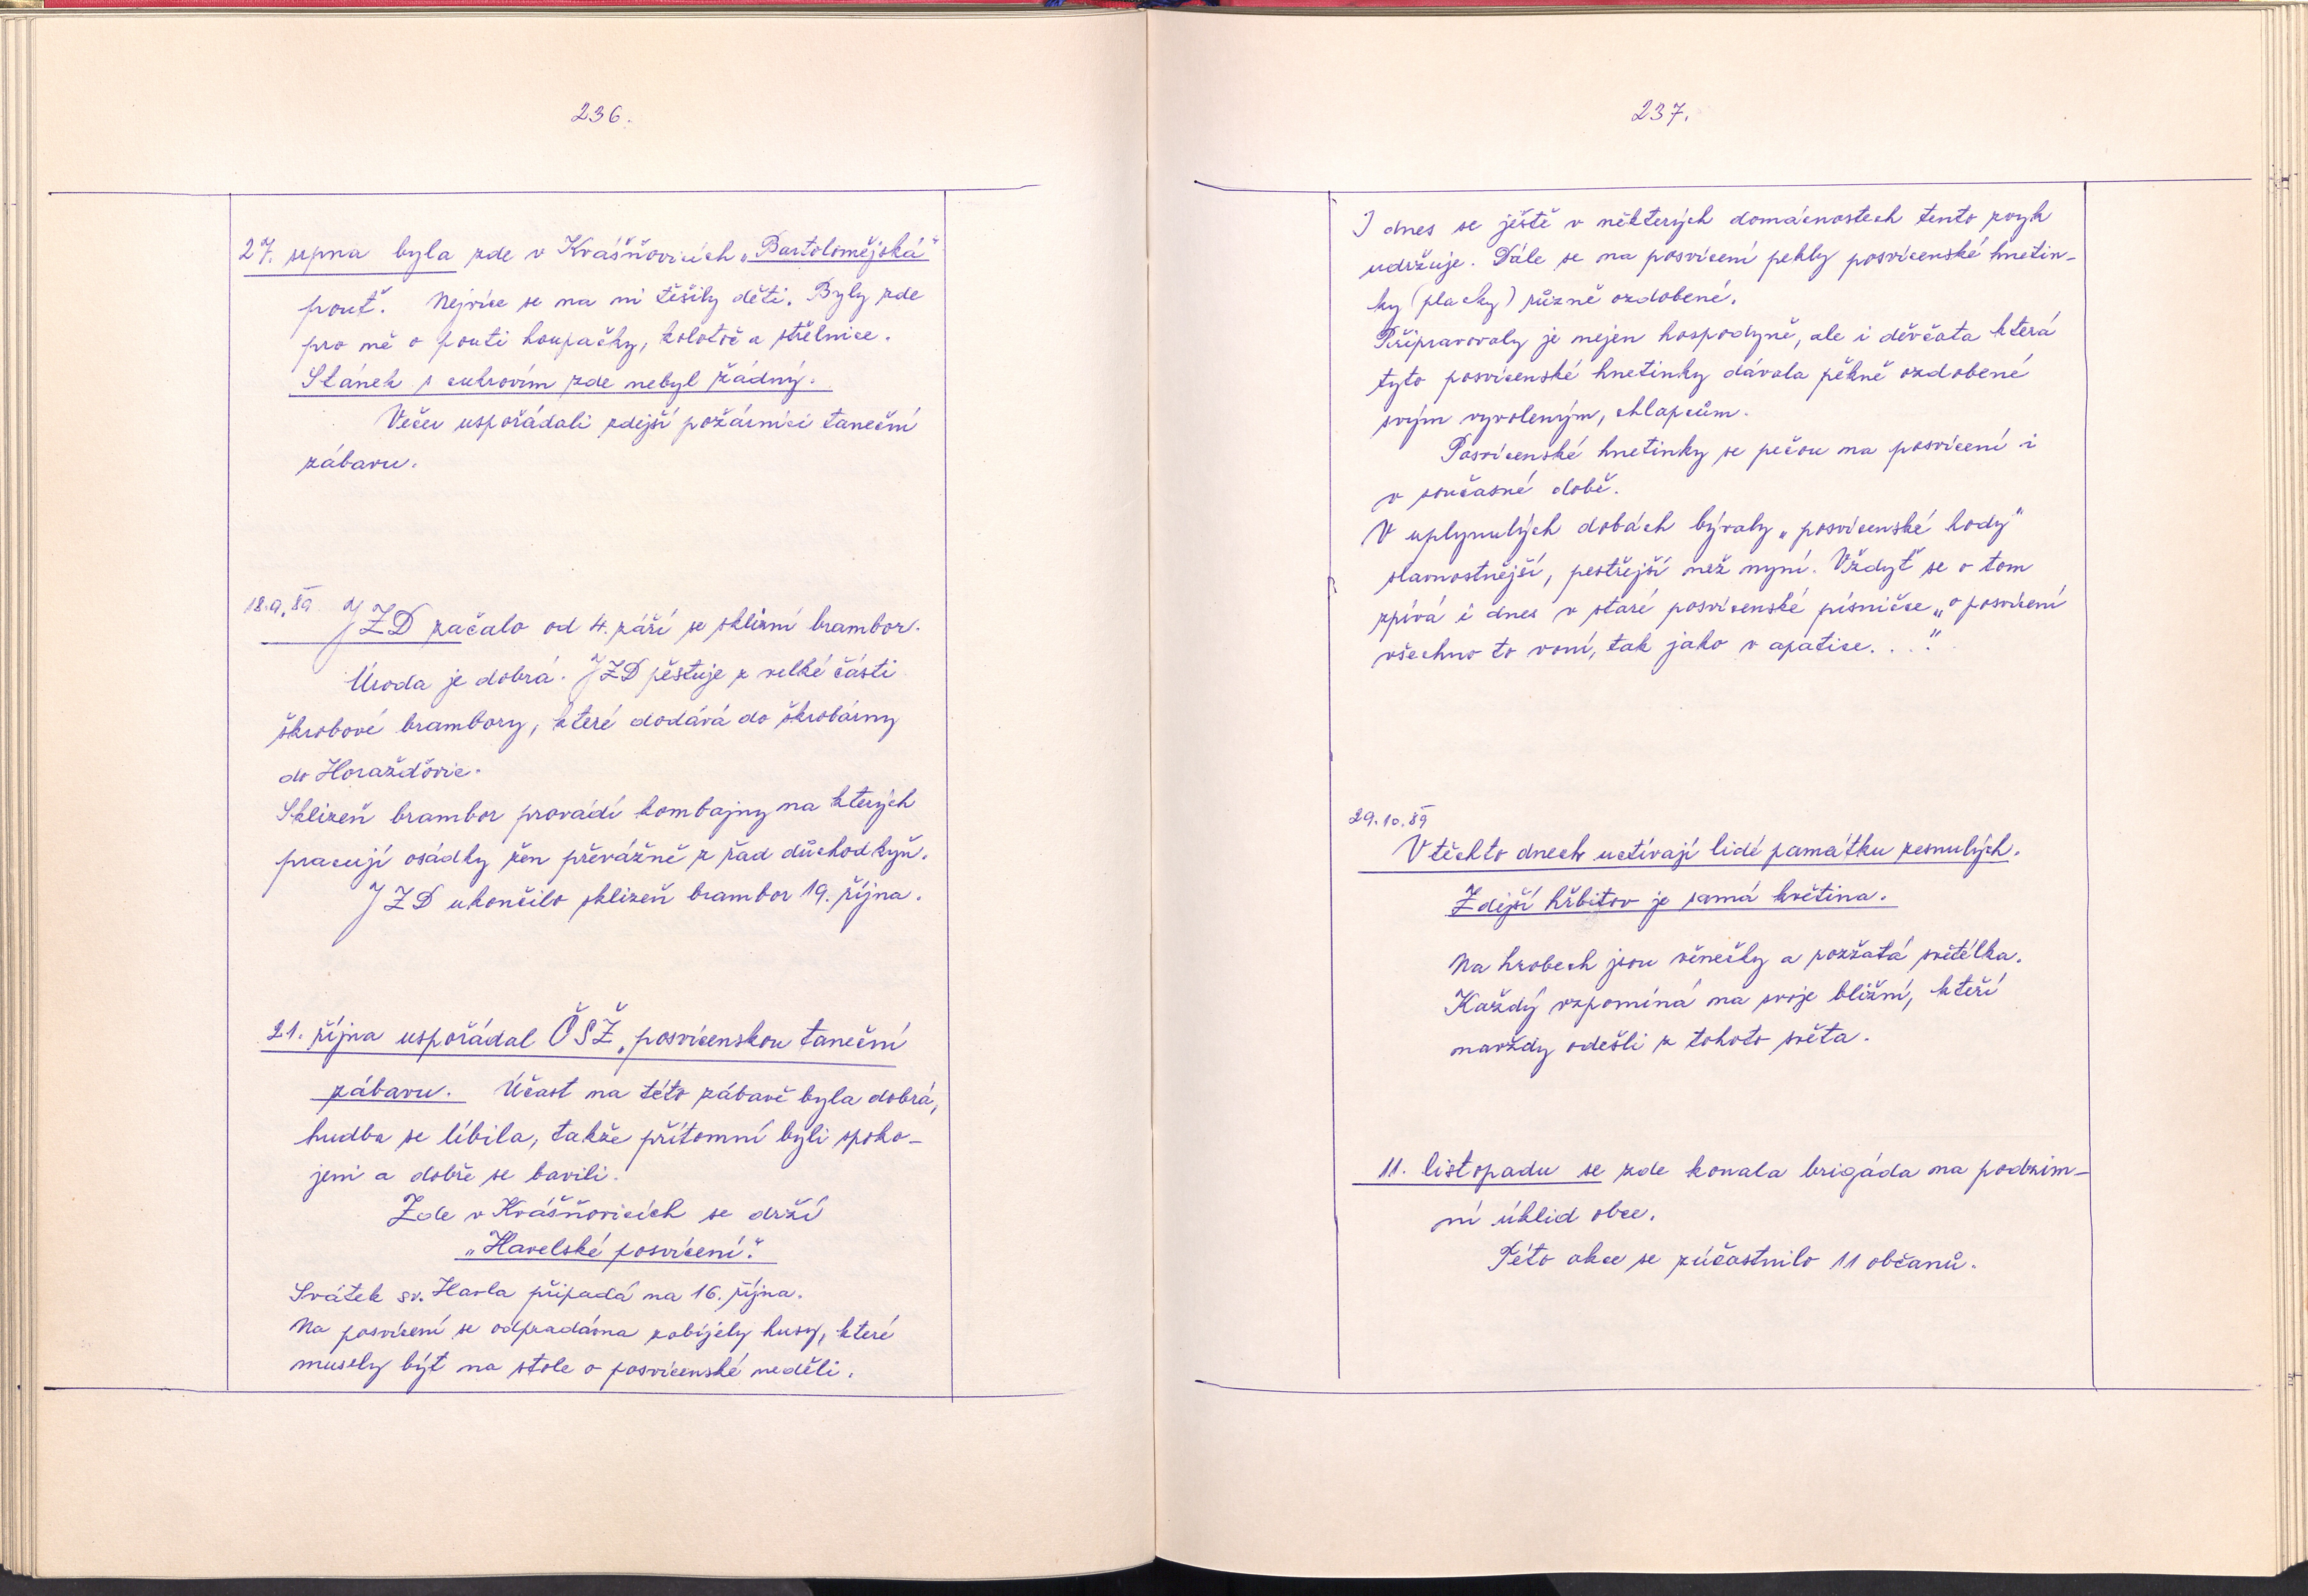 236.
27. srpna byla zde v Krášňovicích „Bartolomějská"
pouť. Nejvíce se na ni těšily děti. Byly zde
pro ně o pouti houpačky, kolotoč a střelnice.
Stánek s cukrovím zde nebyl žádný.
Večer uspořádali zdejší požárníci taneční
zábavu.
18.9.89. JZD začalo od 4. září se sklizní brambor.
Úroda je dobrá. JZD pěstuje z velké části
škrobové brambory, které dodává do škrobárny
do Horažďovic.
Sklizeň brambor provádí kombajny na kterých
pracují osádky žen převážně z řad důchodkyň.
JZD ukončilo sklizeň brambor 19. října.
21. října uspořádal ČSŽ „posvícenskou taneční
zábavu. Účast na této zábavě byla dobrá,
hudba se líbila, takže přítomní byli spoko-
jeni a dobře se bavili.
Zde v Krášňovicích se drží
„Havelské posvícení."
Svátek sv. Havla připadá na 16. října.
Na posvícení se odpradávna zabíjely husy, které
musely být na stole o posvícenské neděli.
237.
I dnes se ještě v některých domácnostech tento zvyk
udržuje. Dále se na posvícení pekly posvícenské hnetin-
ky (placky) různě ozdobené.
Připravovaly je nejen hospodyně, ale i děvčata která
tyto posvícenské hnetinky dávala pěkně ozdobené
svým vyvoleným, chlapcům.
Posvícenské hnetinky se pečou na posvícení i
v současné době.
V uplynulých dobách bývaly „posvícenské hody"
slavnostnější, pestřejší než nyní. Vždyť se o tom
zpívá i dnes v staré posvícenské písničce „o posvícení
všechno to voní, tak jako v apatice...."
29.10.89
V těchto dnech uctívají lidé památku zesnulých.
Zdejší hřbitov je samá květina.
Na hrobech jsou věnečky a rozžatá světélka.
Každý vzpomíná na svoje bližní, kteří
navždy odešli z tohoto světa.
11. listopadu se zde konala brigáda na podzim-
ní úklid obce.
Této akce se zúčastnilo 11 občanů.